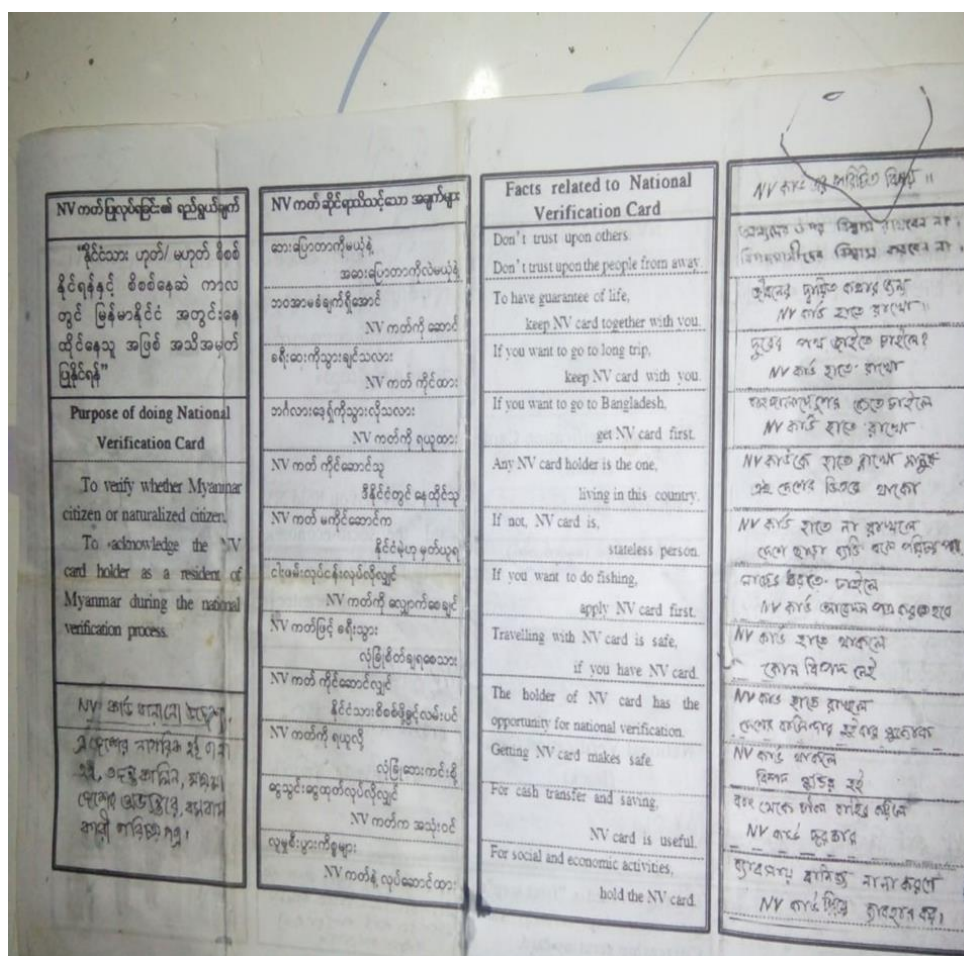 NV ကတ်ပြုလုပ်ရခြင်း၏ ရည်ရွယ်ချက်
“နိုင်ငံသား ဟုတ်/ မဟုတ် စိစစ်
နိုင်ရန်နှင့် စိစစ်နေဆဲ ကာလ
တွင် မြန်မာနိုင်ငံ အတွင်းနေ
ထိုင်နေသူ အဖြစ် အသိအမှတ်
ပြုနိုင်ရန်”
Purpose of doing National
Verification Card
To verify whether Myanmar
citizen or naturalized citizen.
To acknowledge the NV
card holder as a resident of
Myanmar during the national
verification process.
NV কার্ড বানানো উদ্দেশ্য
এ দেশের নাগরিক হই
দেশের
NV ကတ်ဆိုင်ရာသိသင့်သော အချက်များ
ဘေးပြောတာကိုမယုံနဲ့
အဝေးပြောတာကိုလဲမယုံနဲ့
ဘဝအာမခံချက်ရှိအောင်
NV ကတ်ကို ဆောင်
ခရီးဝေးကိုသွားချင်သလား
NV ကတ် ကိုင်ထား
ဘင်္ဂလားဒေ့ရှ်ကိုသွားလိုသလား
NV ကတ်ကို ရယူထား
NV ကတ် ကိုင်ဆောင်သူ
ဒီနိုင်ငံတွင် နေထိုင်သူ
NV ကတ် မကိုင်ဆောင်က
နိုင်ငံမဲ့ဟု မှတ်ယူရ
ငါးဖမ်းလုပ်ငန်းလုပ်လိုလျှင်
NV ကတ်ကို လျှောက်စေချင်
NV ကတ်ဖြင့် ခရီးသွား
လုံခြုံစိတ်ချရစေသား
NV ကတ် ကိုင်ဆောင်လျှင်
နိုင်ငံသားစိစစ်ဖို့ခွင့်လမ်းပင်
NV ကတ်ကို ရယူလို့
လုံခြုံဘေးကင်းစို့
ငွေသွင်းငွေထုတ်လုပ်လိုလျှင်
NV ကတ်က အသုံးဝင်
လူမှုစီးပွားကိစ္စများ
NV ကတ်နဲ့ လုပ်ဆောင်ထား
Facts related to National
Verification Card
Don't trust upon others.
Don't trust upon the people from away.
To have guarantee of life,
keep NV card together with you.
If you want to go to long trip,
keep NV card with you.
If you want to go to Bangladesh,
get NV card first.
Any NV card holder is the one,
living in this country.
If not, NV card is,
stateless person.
If you want to do fishing,
apply NV card first.
Travelling with NV card is safe,
if you have NV card.
The holder of NV card has the
opportunity for national verification.
Getting NV card makes safe.
For cash transfer and saving,
NV card is useful.
For social and economic activities,
hold the NV card.
NV কার্ড এর পরিচিত বিষয় ॥
বিশ্বাস রাখবেন না
বিশ্বাস করবেন না
NV কার্ড হাতে রাখো
দূরের পথ যাইতে চাইলে?
NV কার্ড হাতে রাখো
যেতে চাইলে
NV কার্ড হাতে রাখো
NV কার্ডকে হাতে রাখো মানুষ
এই দেশের ভিতরে থাকো
NV কার্ড হাতে না রাখলে
চাইলে
NV কার্ড
NV কার্ড হাতে থাকলে
কোন বিপদ নেই
NV কার্ড হাতে রাখলে
NV কার্ড থাকলে
NV কার্ড দরকার
NV কার্ড